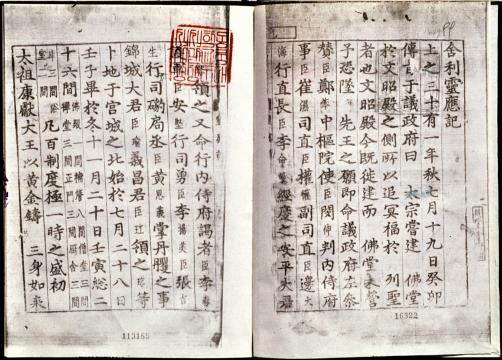 舍利靈應記
上之三十有一年秋七月十九日癸卯
傳旨于議政府曰 太宗嘗建 佛堂
於文昭殿之側所以追冥福於 列聖
者也文昭殿今既徙建而 佛堂未營
予恐墜 先王之願即命議政府左參
贊臣鄭苯中樞院使臣閔伸判內侍府
事臣崔濕司直臣權 副司直臣邊大
海行直長臣李命敏經度之安平大君
領之又命行內侍府謁者臣李
臣安堅行司勇臣李揚美臣張吉
生行司礪局丞臣黃思義掌丹雘之事
錦城大君臣瑜義昌君臣玒領之瑢等
卜地于宮城之北始於七月二十八日
壬子畢於冬十一月二十日壬寅總二
十六間佛殿一間 八間僧堂三間
禪堂三間正門三間廚舍三間
凡百制度極一時之盛初
太祖康獻大王以黃金鑄 三身如來
16322
113155